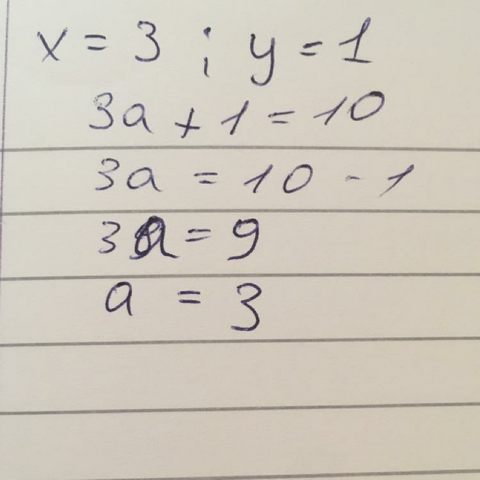 x = 3 ; y = 1
3a + 1 = 10
3a = 10 - 1
3a = 9
a = 3